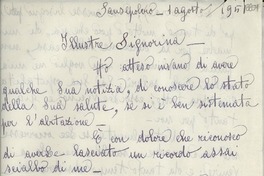 Sansepolcro - 1 agosto 1951
Illustre Signorina -
Ho atteso invano di avere
qualche Sua notizia, di conoscere lo stato
della Sua salute, se si è ben sistemata
per l'abitazione -
È con dolore che riconosco
di averLe lasciato un ricordo assai
scialbo di me -